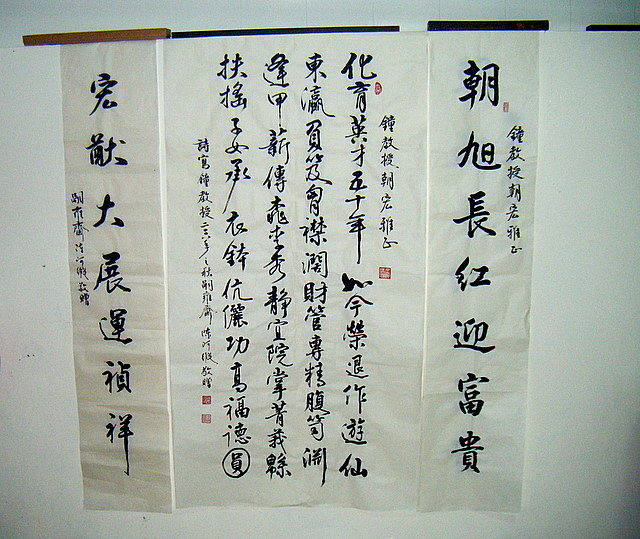 鐘教授朝宏雅正
朝旭長紅迎富貴
鐘教授朝宏雅正
化育英才五十年 如今榮退作遊仙
東瀛負笈胸襟濶財管專精腹笥淵
逢甲薪傳桃李秀靜宜院掌菁莪緜
扶搖子女承衣鉢伉儷功高福德圓
詩寫鐘教授 之秋 雍齋 河 敬贈
宏猷大展運禎祥
雍齋 河 敬贈